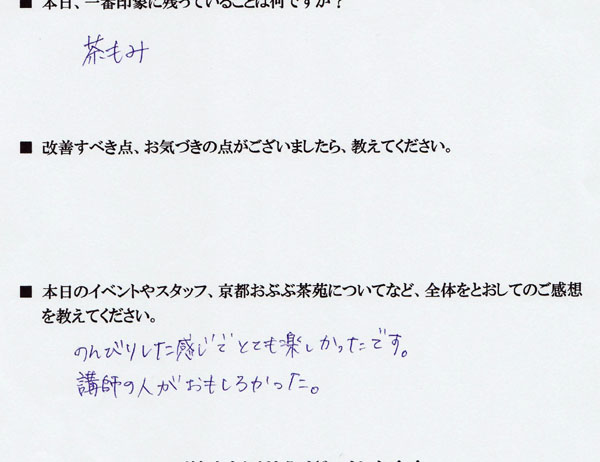 ■ 本日、一番印象に残っていることは何ですか？
茶もみ
■ 改善すべき点、お気づきの点がございましたら、教えてください。
■ 本日のイベントやスタッフ、京都おぶぶ茶苑についてなど、全体をとおしてのご感想
を教えてください。
のんびりした感じでとても楽しかったです。
講師の人がおもしろかった。